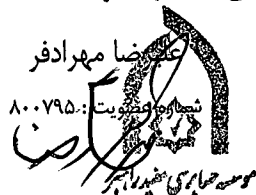 علیرضا مهرادفر
شماره عضویت: ۸۰۰۷۹۵
موسسه حسابرسی مفید راهبر